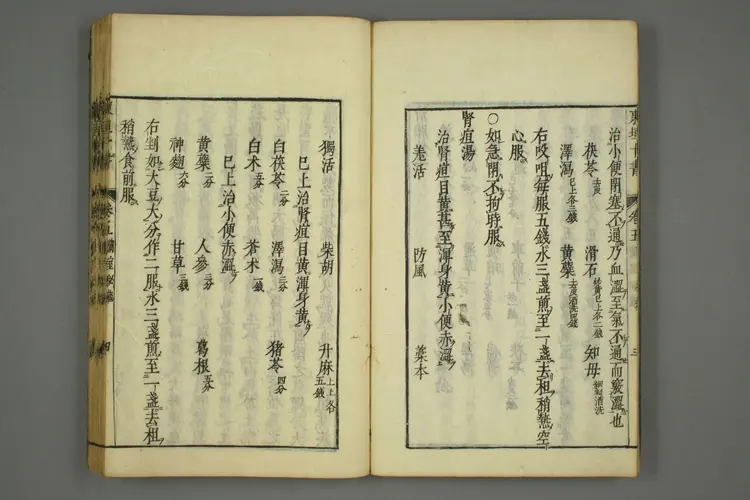 治小便閉塞不通乃血澀至氣不通而竅澀也
茯苓 去皮 滑石 已上各二錢 知母 酒洗
澤瀉 已上各三錢 黃蘗
右㕮咀每服五錢水三盞煎至一盞去柤稍熱空
心服
○如急閉不拘時服
腎疸湯
治腎疸目黃甚至渾身黃小便赤澀
羌活 防風 藁本
獨活 柴胡 升麻 已上各五錢
已上治腎疸目黃渾身黃
白茯苓 二分 澤瀉 三分 豬苓 四分
白朮 五分 蒼朮 一錢
已上治小便赤澀
黃蘗 二分 人參 三分 葛根 五分
神麴 六分 甘草 三錢
右剉如大豆大分作二服水三盞煎至一盞去柤
稍熱食前服
卷五
四